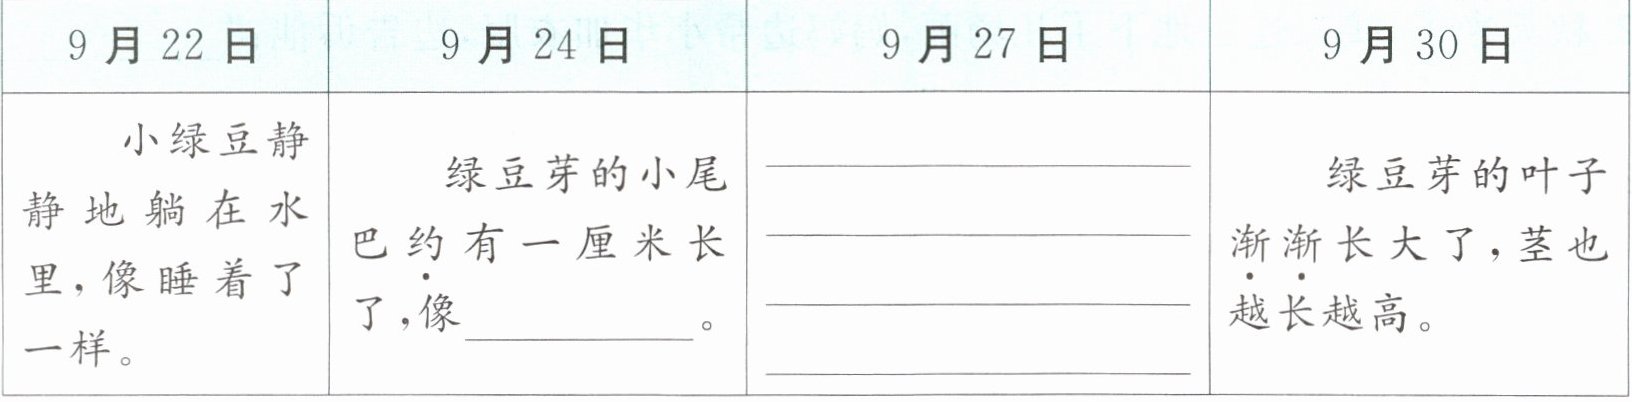 9月22日
9月24日
9月27日
9月30日
小绿豆静
静地躺在水
里,像睡着了
一样。
绿豆芽的小尾
巴约有一厘米长
了,像__________。
绿豆芽的叶子
渐渐长大了,茎也
越长越高。